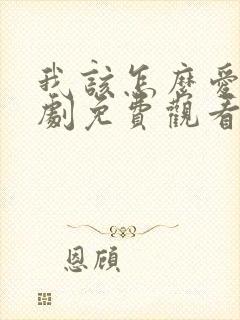 我該怎麼愛
劇免費觀看
恩顧